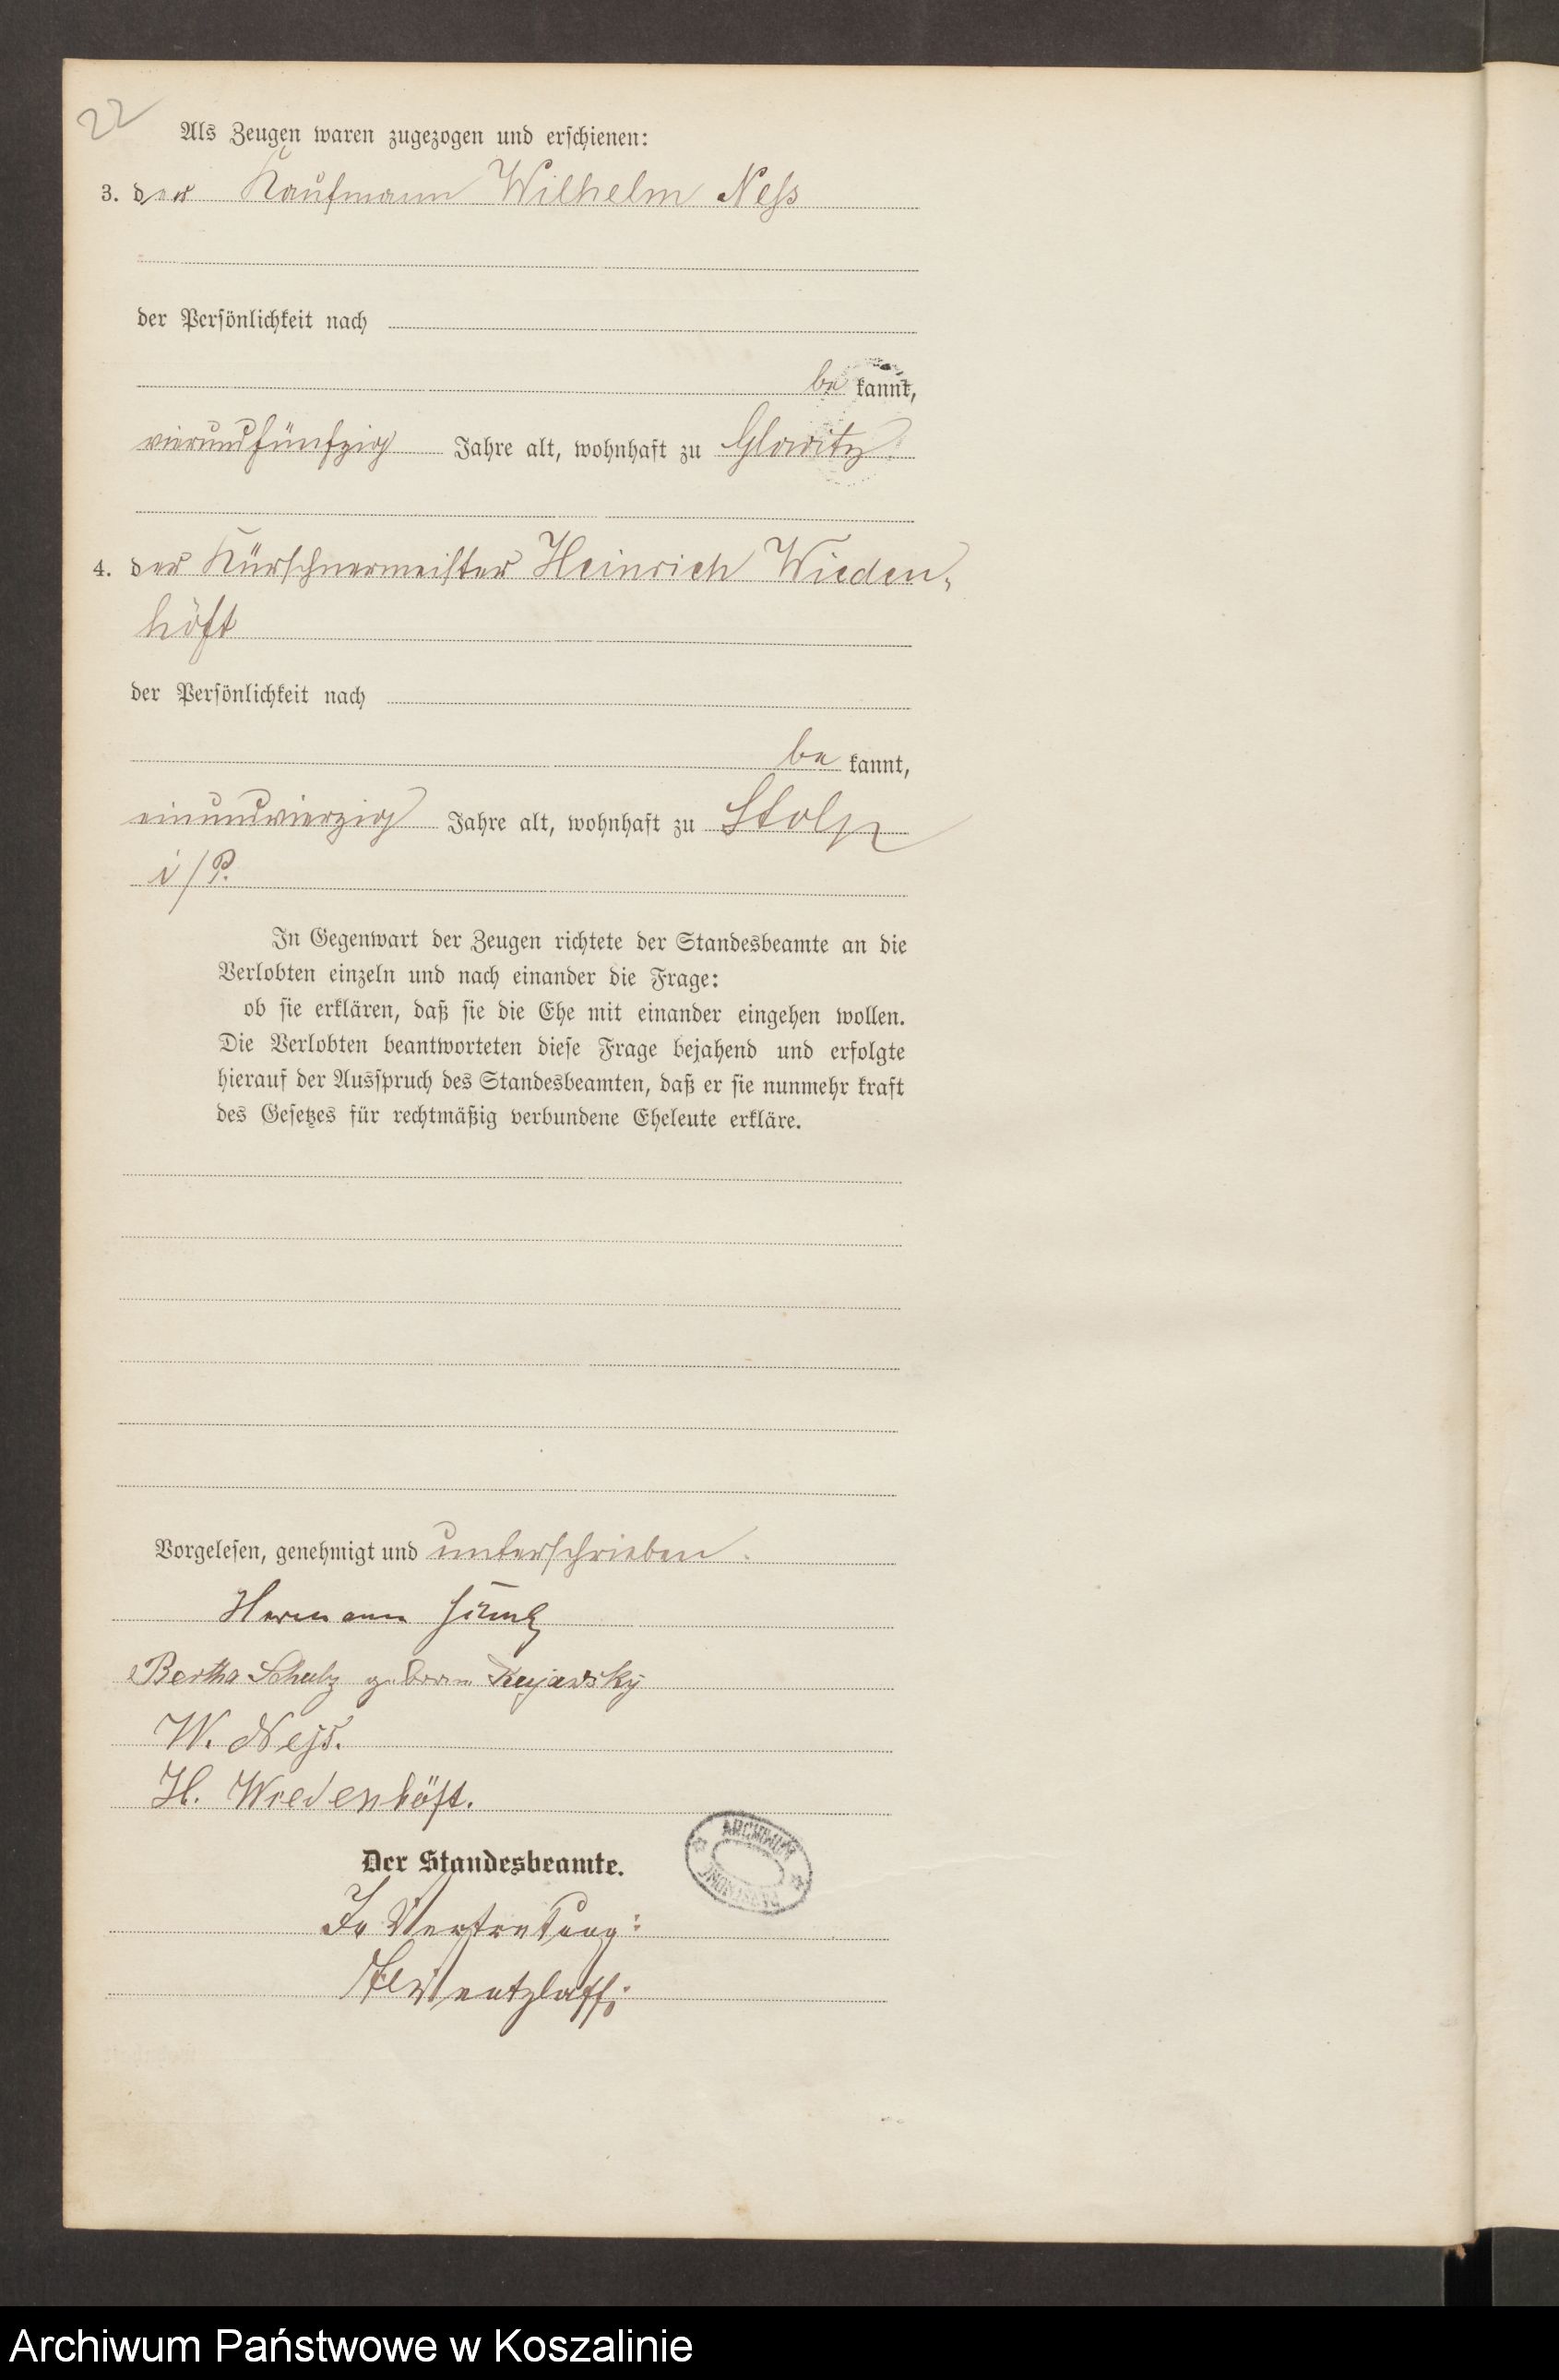 22
Als Zeugen waren zugezogen und erschienen:
3. der Kaufmann Wilhelm Neß
der Persönlichkeit nach
be kannt,
vierundfünfzig Jahre alt, wohnhaft zu Glowitz.
4. der Kürschnermeister Heinrich Wieden-
höft
der Persönlichkeit nach
be kannt,
einundvierzig Jahre alt, wohnhaft zu Stolp
i/P.
In Gegenwart der Zeugen richtete der Standesbeamte an die
Verlobten einzeln und nach einander die Frage:
ob sie erklären, daß sie die Ehe mit einander eingehen wollen.
Die Verlobten beantworteten diese Frage bejahend und erfolgte
hierauf der Ausspruch des Standesbeamten, daß er sie nunmehr kraft
des Gesetzes für rechtmäßig verbundene Eheleute erkläre.
Vorgelesen, genehmigt und unterschrieben.
Hermann
Bertha Schulz geboren Kujawsky
W. Neß.
H. Wiedenhöft.
ARCHIWUM
Der Standesbeamte.
In Vertretung:
Archiwum Państwowe w Koszalinie